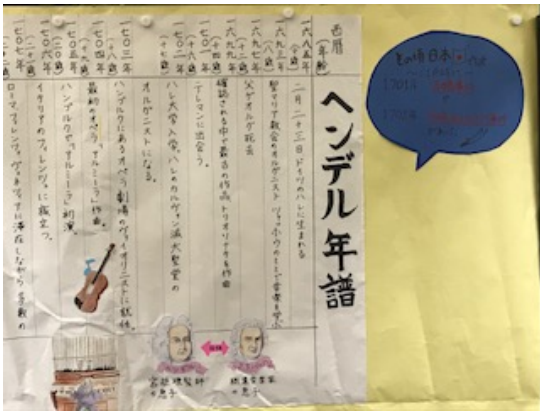 ヘンデル年譜
西暦
(年齢)
一六八五年
二月二十三日ドイツのハレに生まれる
(八歳)
聖マリア教会のオルガニスト ツァッホウのもとで音楽を学ぶ
一六九七年
父ゲオルグ死去
一六九九年
(十四歳)
確認される中で最古の作品、トリオソナタを作曲
一七〇一年
テレマンに出会う。
一七〇二年
ハレ大学入学。ハレのカルヴァン派大聖堂の
オルガニストになる。
一七〇三年
(十八歳)
ハンブルクにあるオペラ劇場のヴァイオリニストに就任。
(十九歳)
最初のオペラ「アルミーラ」作曲。
一七〇五年
(二十歳)
ハンブルクで「アルミーラ」初演。
一七〇六年
(二十一歳)
イタリアのフィレンツェに旅立つ。
一七〇七年
ローマ、フィレンツェ、ヴェネツィアに滞在しながら 多数の
その頃日本では
1701年
が
1702年
があった
の息子
の息子